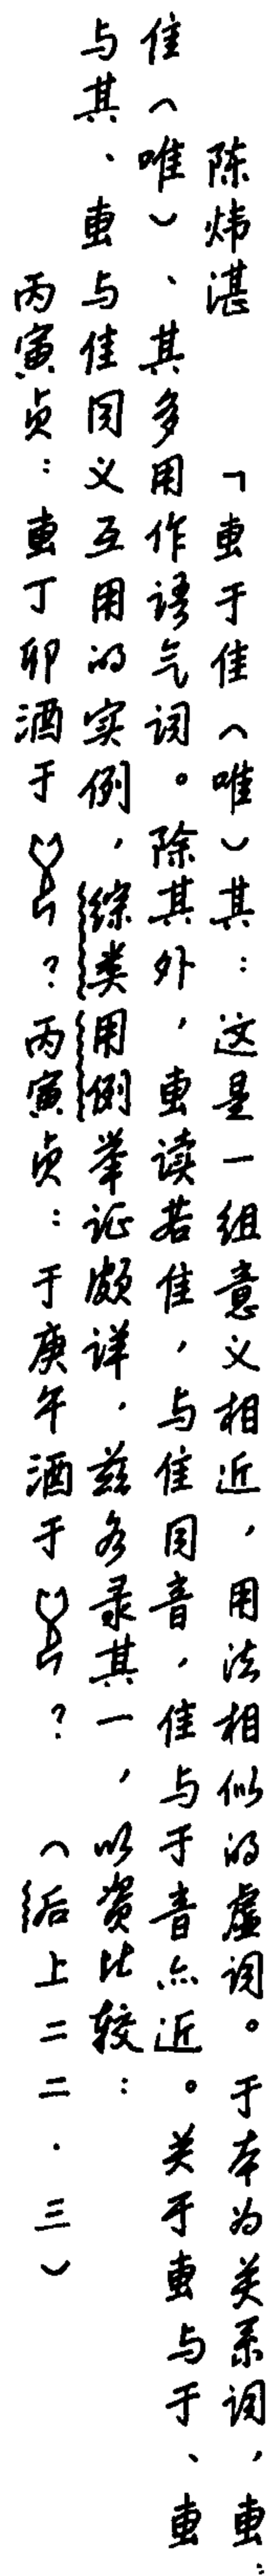 陈炜湛 「叀于隹(唯)其:这是一组意义相近,用法相似的虚词。于本为关系词,叀:
隹(唯)、其多用作语气词。除其外,叀读若隹,与隹同音,隹与于音亦近。关于叀与于、叀
与其、叀与隹同义互用的实例,综类用例举证颇详,兹各录其一,以资比较:
丙寅贞:叀丁卯酒于?丙寅贞:于庚午酒于?(后上二二·三)